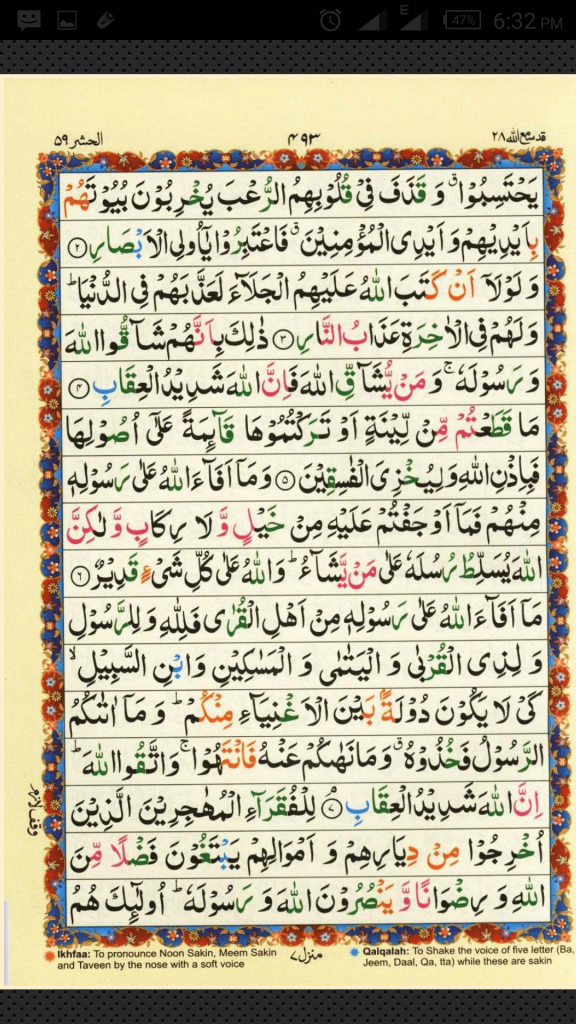 E 47% 6:32 PM
قد سمع الله ٢٨ ۴۹۳ الحشر ۵۹
يَحْتَسِبُوْا ۗ وَ قَذَفَ فِيْ قُلُوْبِهِمُ الرُّعْبَ يُخْرِبُوْنَ بُيُوْتَهُمْ
بِاَيْدِيْهِمْ وَ اَيْدِی الْمُؤْمِنِيْنَ ۗ فَاعْتَبِرُوْا يٰۤاُولِی الْاَبْصَارِ ﴿۲﴾
وَ لَوْلَاۤ اَنْ كَتَبَ اللهُ عَلَيْهِمُ الْجَلَآءَ لَعَذَّبَهُمْ فِی الدُّنْيَا ؕ
وَ لَهُمْ فِی الْاٰخِرَةِ عَذَابُ النَّارِ ﴿۳﴾ ذٰلِكَ بِاَنَّهُمْ شَآقُّوا اللهَ
وَ رَسُوْلَهٗ ۚ وَ مَنْ يُّشَآقِّ اللهَ فَاِنَّ اللهَ شَدِيْدُ الْعِقَابِ ﴿۴﴾
مَا قَطَعْتُمْ مِّنْ لِّيْنَةٍ اَوْ تَرَكْتُمُوْهَا قَآئِمَةً عَلٰۤی اُصُوْلِهَا
فَبِاِذْنِ اللهِ وَ لِيُخْزِیَ الْفٰسِقِيْنَ ﴿۵﴾ وَ مَاۤ اَفَآءَ اللهُ عَلٰی رَسُوْلِهٖ
مِنْهُمْ فَمَاۤ اَوْجَفْتُمْ عَلَيْهِ مِنْ خَيْلٍ وَّ لَا رِكَابٍ وَّ لٰكِنَّ
اللهَ يُسَلِّطُ رُسُلَهٗ عَلٰی مَنْ يَّشَآءُ ؕ وَ اللهُ عَلٰی كُلِّ شَیْءٍ قَدِيْرٌ ﴿۶﴾
مَاۤ اَفَآءَ اللهُ عَلٰی رَسُوْلِهٖ مِنْ اَهْلِ الْقُرٰی فَلِلّٰهِ وَ لِلرَّسُوْلِ
وَ لِذِی الْقُرْبٰی وَ الْيَتٰمٰی وَ الْمَسٰكِيْنِ وَ ابْنِ السَّبِيْلِ ۙ
كَیْ لَا يَكُوْنَ دُوْلَةًۢ بَيْنَ الْاَغْنِيَآءِ مِنْكُمْ ؕ وَ مَاۤ اٰتٰىكُمُ
الرَّسُوْلُ فَخُذُوْهُ ۗ وَ مَا نَهٰىكُمْ عَنْهُ فَانْتَهُوْا ۚ وَ اتَّقُوا اللهَ ؕ
اِنَّ اللهَ شَدِيْدُ الْعِقَابِ ﴿۷﴾ لِلْفُقَرَآءِ الْمُهٰجِرِيْنَ الَّذِيْنَ
وقف لازم
اُخْرِجُوْا مِنْ دِيَارِهِمْ وَ اَمْوَالِهِمْ يَبْتَغُوْنَ فَضْلًا مِّنَ
اللهِ وَ رِضْوَانًا وَّ يَنْصُرُوْنَ اللهَ وَ رَسُوْلَهٗ ؕ اُولٰٓئِكَ هُمُ
منزل ۷
Ikhfaa: To pronounce Noon Sakin, Meem Sakin
and Taveen by the nose with a soft voice
Qalqalah: To Shake the voice of five letter (Ba,
Jeem, Daal, Qa, tta) while these are sakin